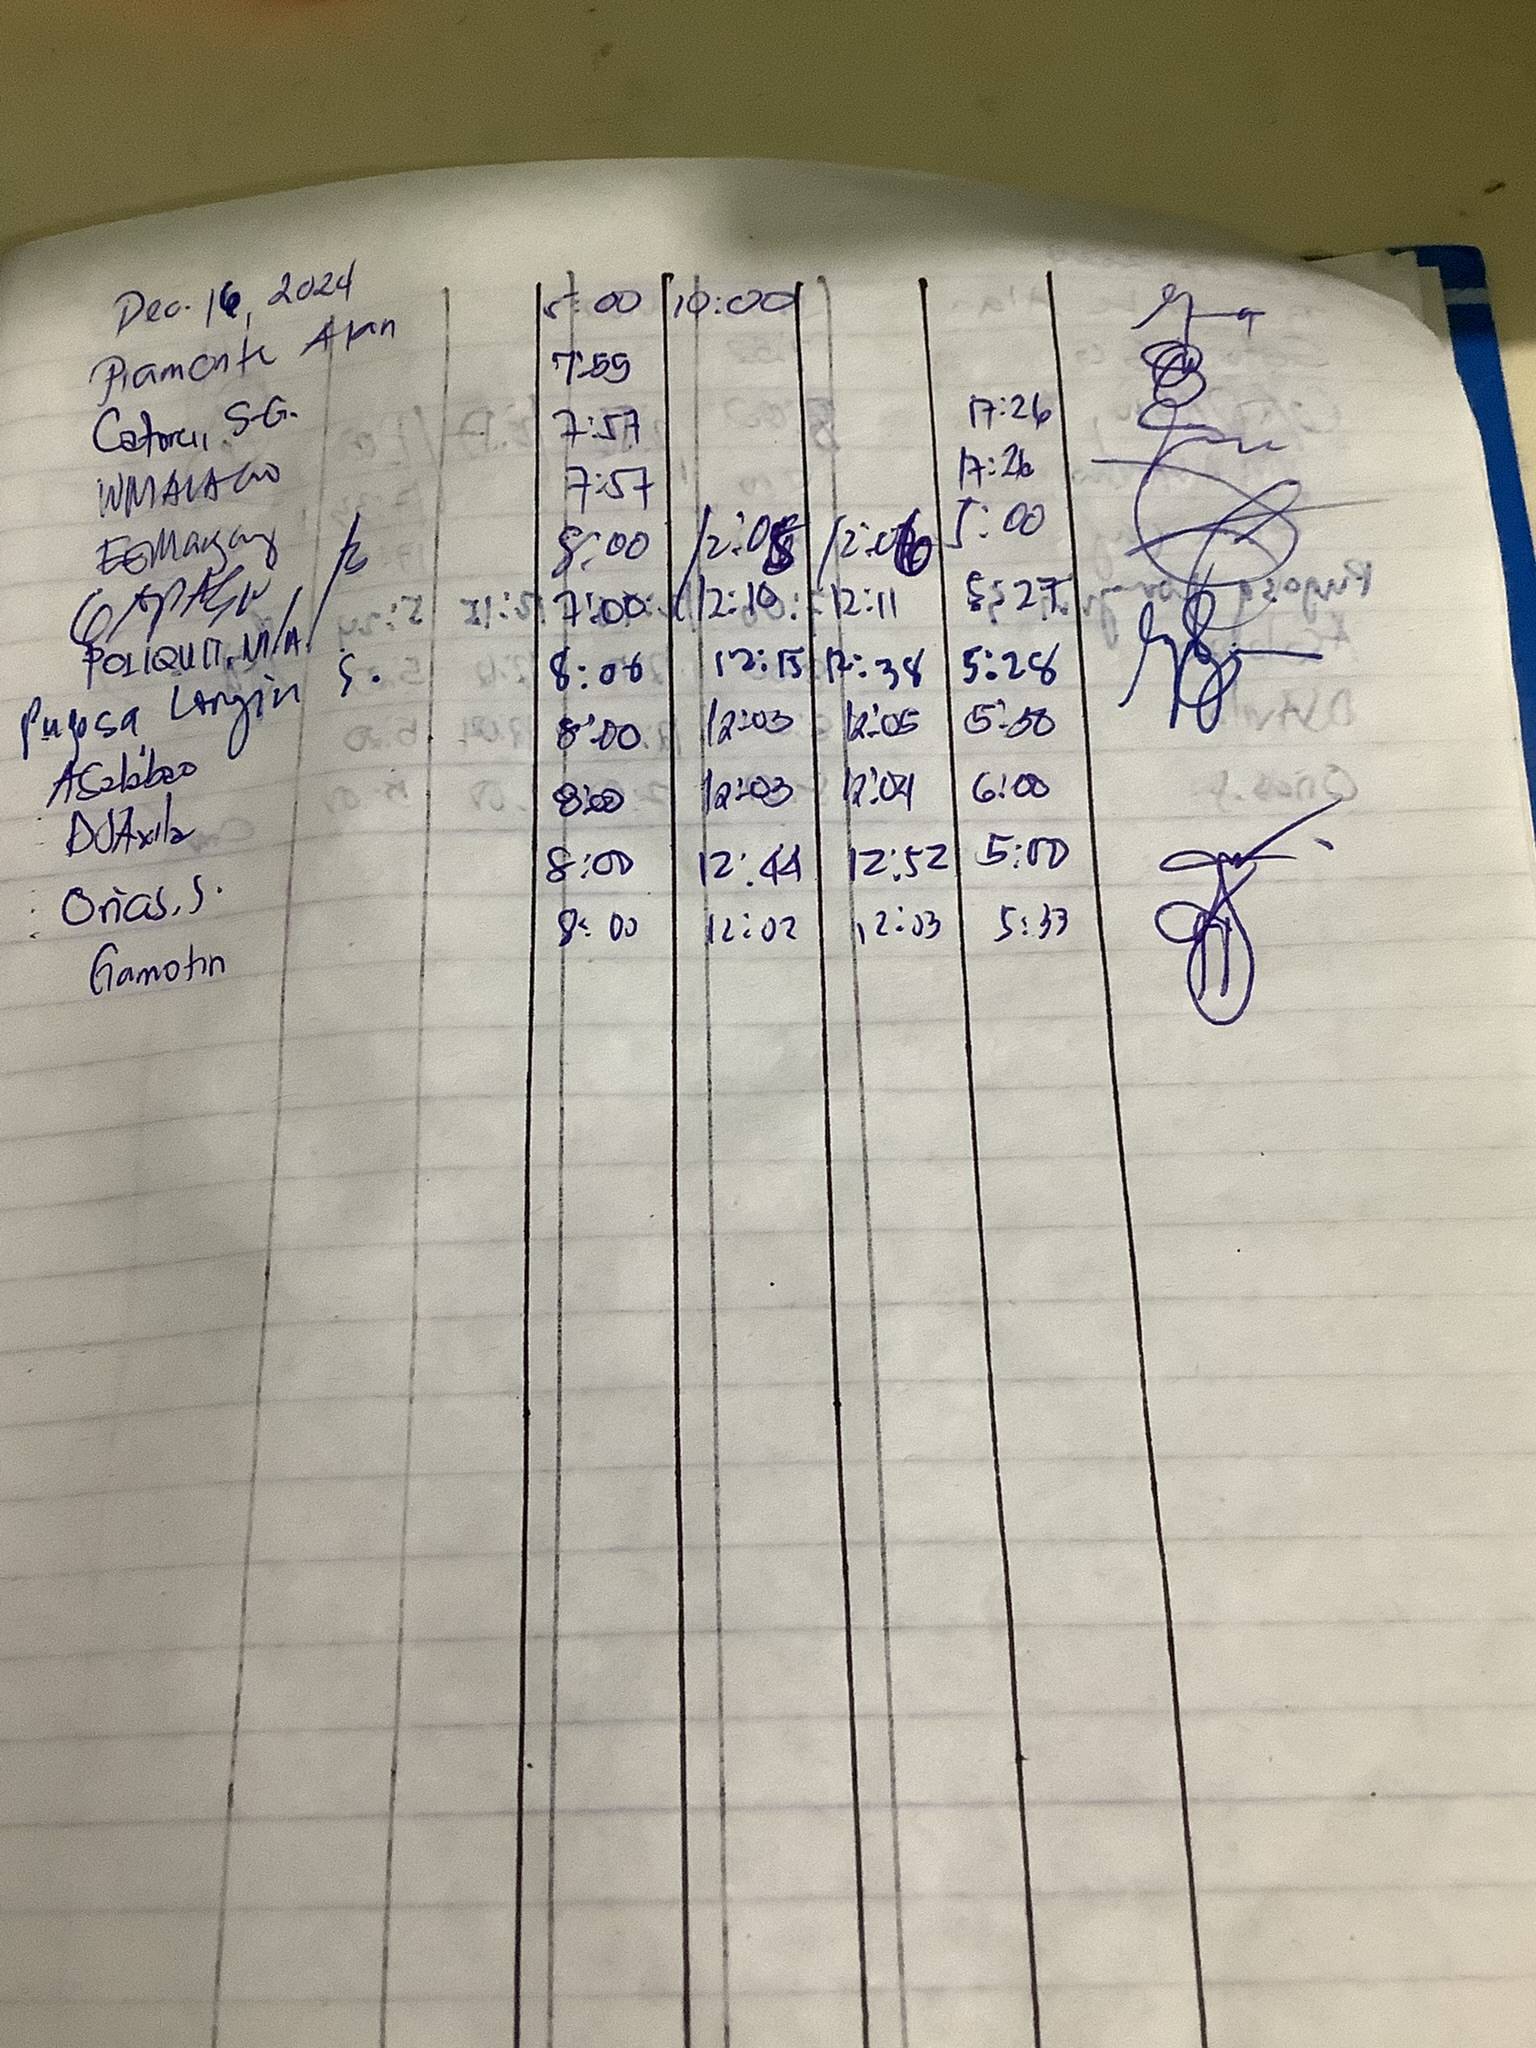 Dec. 16, 2024
Piamonte Alan 5:00 10:00
Catoru, S.G. 7:55
7:57 17:26
7:57 17:26
8:00 12:08 12:06 5:00
POLIQUIT, M/A. 7:00 12:10 12:11 5:27
Pugosa Longin S. 8:00 12:15 12:38 5:28
8:00 12:03 12:05 5:30
DJAvila 8:00 12:03 12:04 6:00
Orias, S. 8:00 12:44 12:52 5:00
Gamotin 8:00 12:02 12:03 5:33